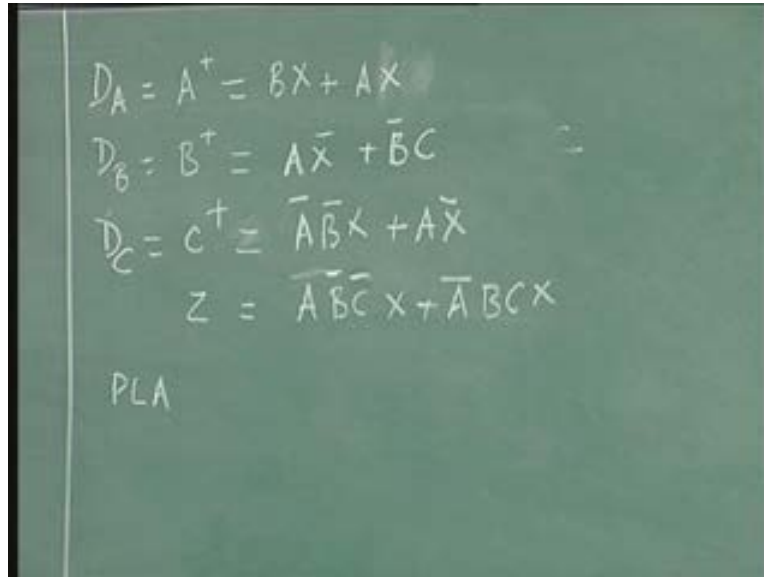 D_A = A⁺ = BX + AX
D_B = B⁺ = AX̄ + B̄C =
D_C = C⁺ = ĀB̄X + AX̄
Z = ĀB̄C̄X + ĀBCX
PLA